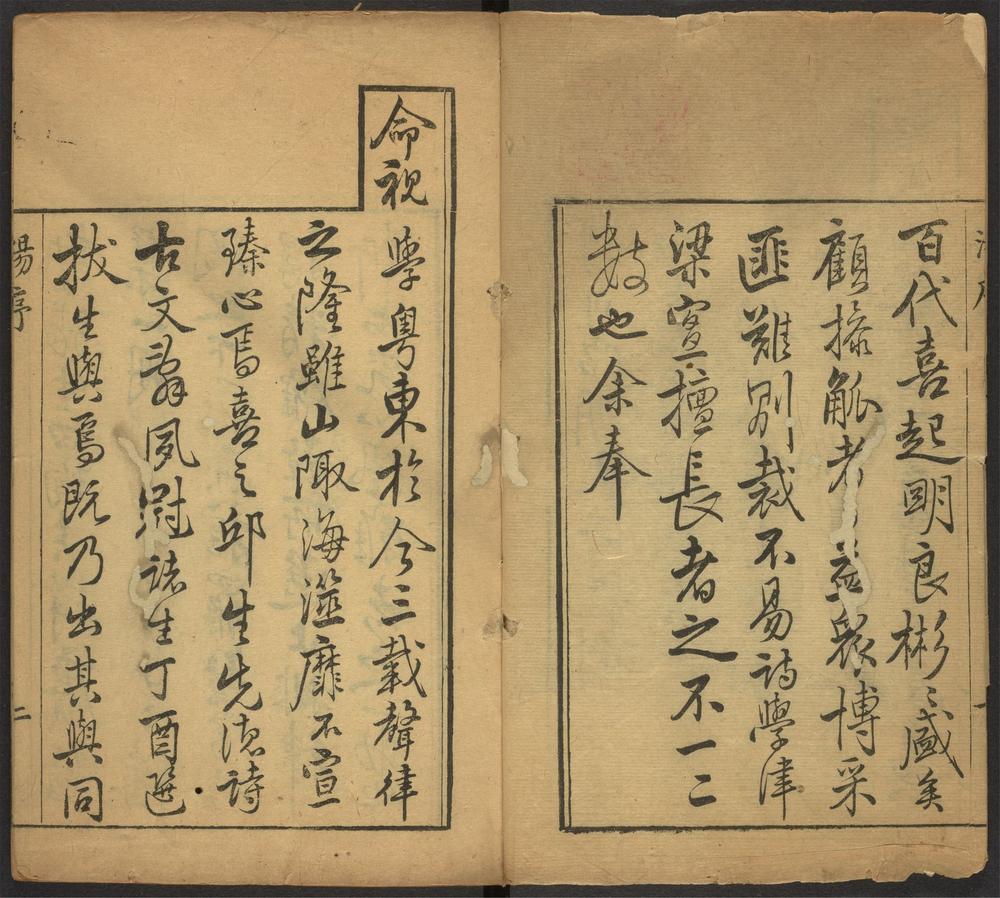 百代喜起明良彬彬盛矣
顧操觚者益裒博采
匪難別裁不易詩學津
梁寔擅長者之不一二
數也余奉
命視學粵東於今三載聲律
之隆雖山陬海澨靡不宣
臻心焉喜之邱生先德詩
古文辭夙冠諸生丁酉選
拔生與焉既乃出其與同
湯序
二